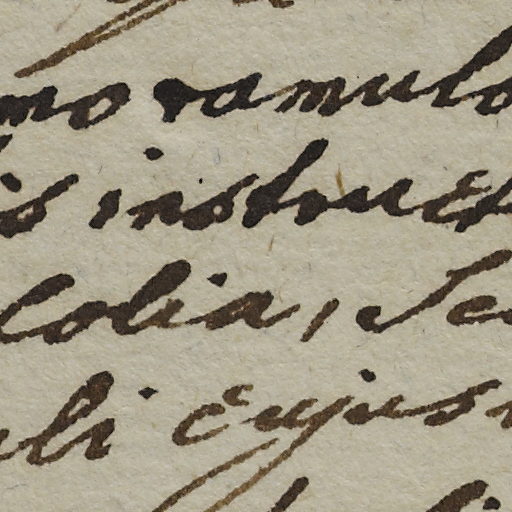 mo ramulo
is instruct
lolia, Se
uli cujus